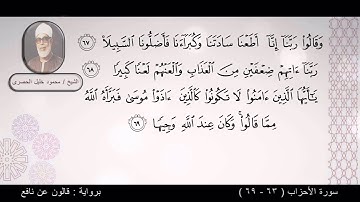 وَقَالُوا رَبَّنَا إِنَّا أَطَعْنَا سَادَتَنَا وَكُبَرَاءَنَا فَأَضَلُّونَا السَّبِيلَا ٦٧
رَبَّنَا ءَاتِهِمْ ضِعْفَيْنِ مِنَ الْعَذَابِ وَالْعَنْهُمْ لَعْنًا كَثِيرًا ٦٨
يَٰأَيُّهَا الَّذِينَ ءَامَنُوا لَا تَكُونُوا كَالَّذِينَ ءَاذَوْا مُوسَىٰ فَبَرَّأَهُ اللَّهُ
مِمَّا قَالُوا وَكَانَ عِندَ اللَّهِ وَجِيهًا ٦٩
الشيخ / محمود خليل الحصرى
سورة الأحزاب ( ٦٣ - ٦٩ )
برواية : قالون عن نافع